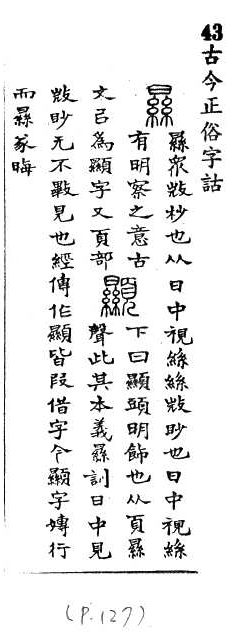 43古今正俗字詁
㬎
㬎眾𢼸杪也从日中視絲絲𢼸眇也日中視絲
有明察之意古
文㠯為顯字又頁部
顯
下曰顯頭明飾也从頁㬎
聲此其本義㬎訓日中見
𢼸眇无不見也經傳作顯皆叚借字今顯字嫥行
而㬎篆晦
(P.127)